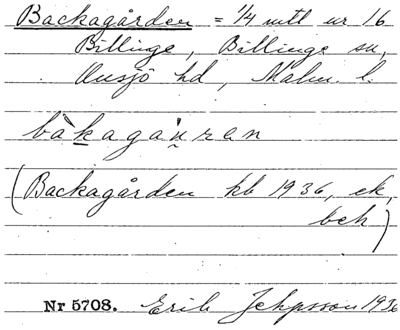 Backagården = 1/4 mtl nr 16
Billinge, Billinge sn,
Onsjö hd, Malm. l.
bàkagåu̯ren
(Backagården kb 1936, ek,
bch)
Nr 5708. Erik Jeppsson 1936